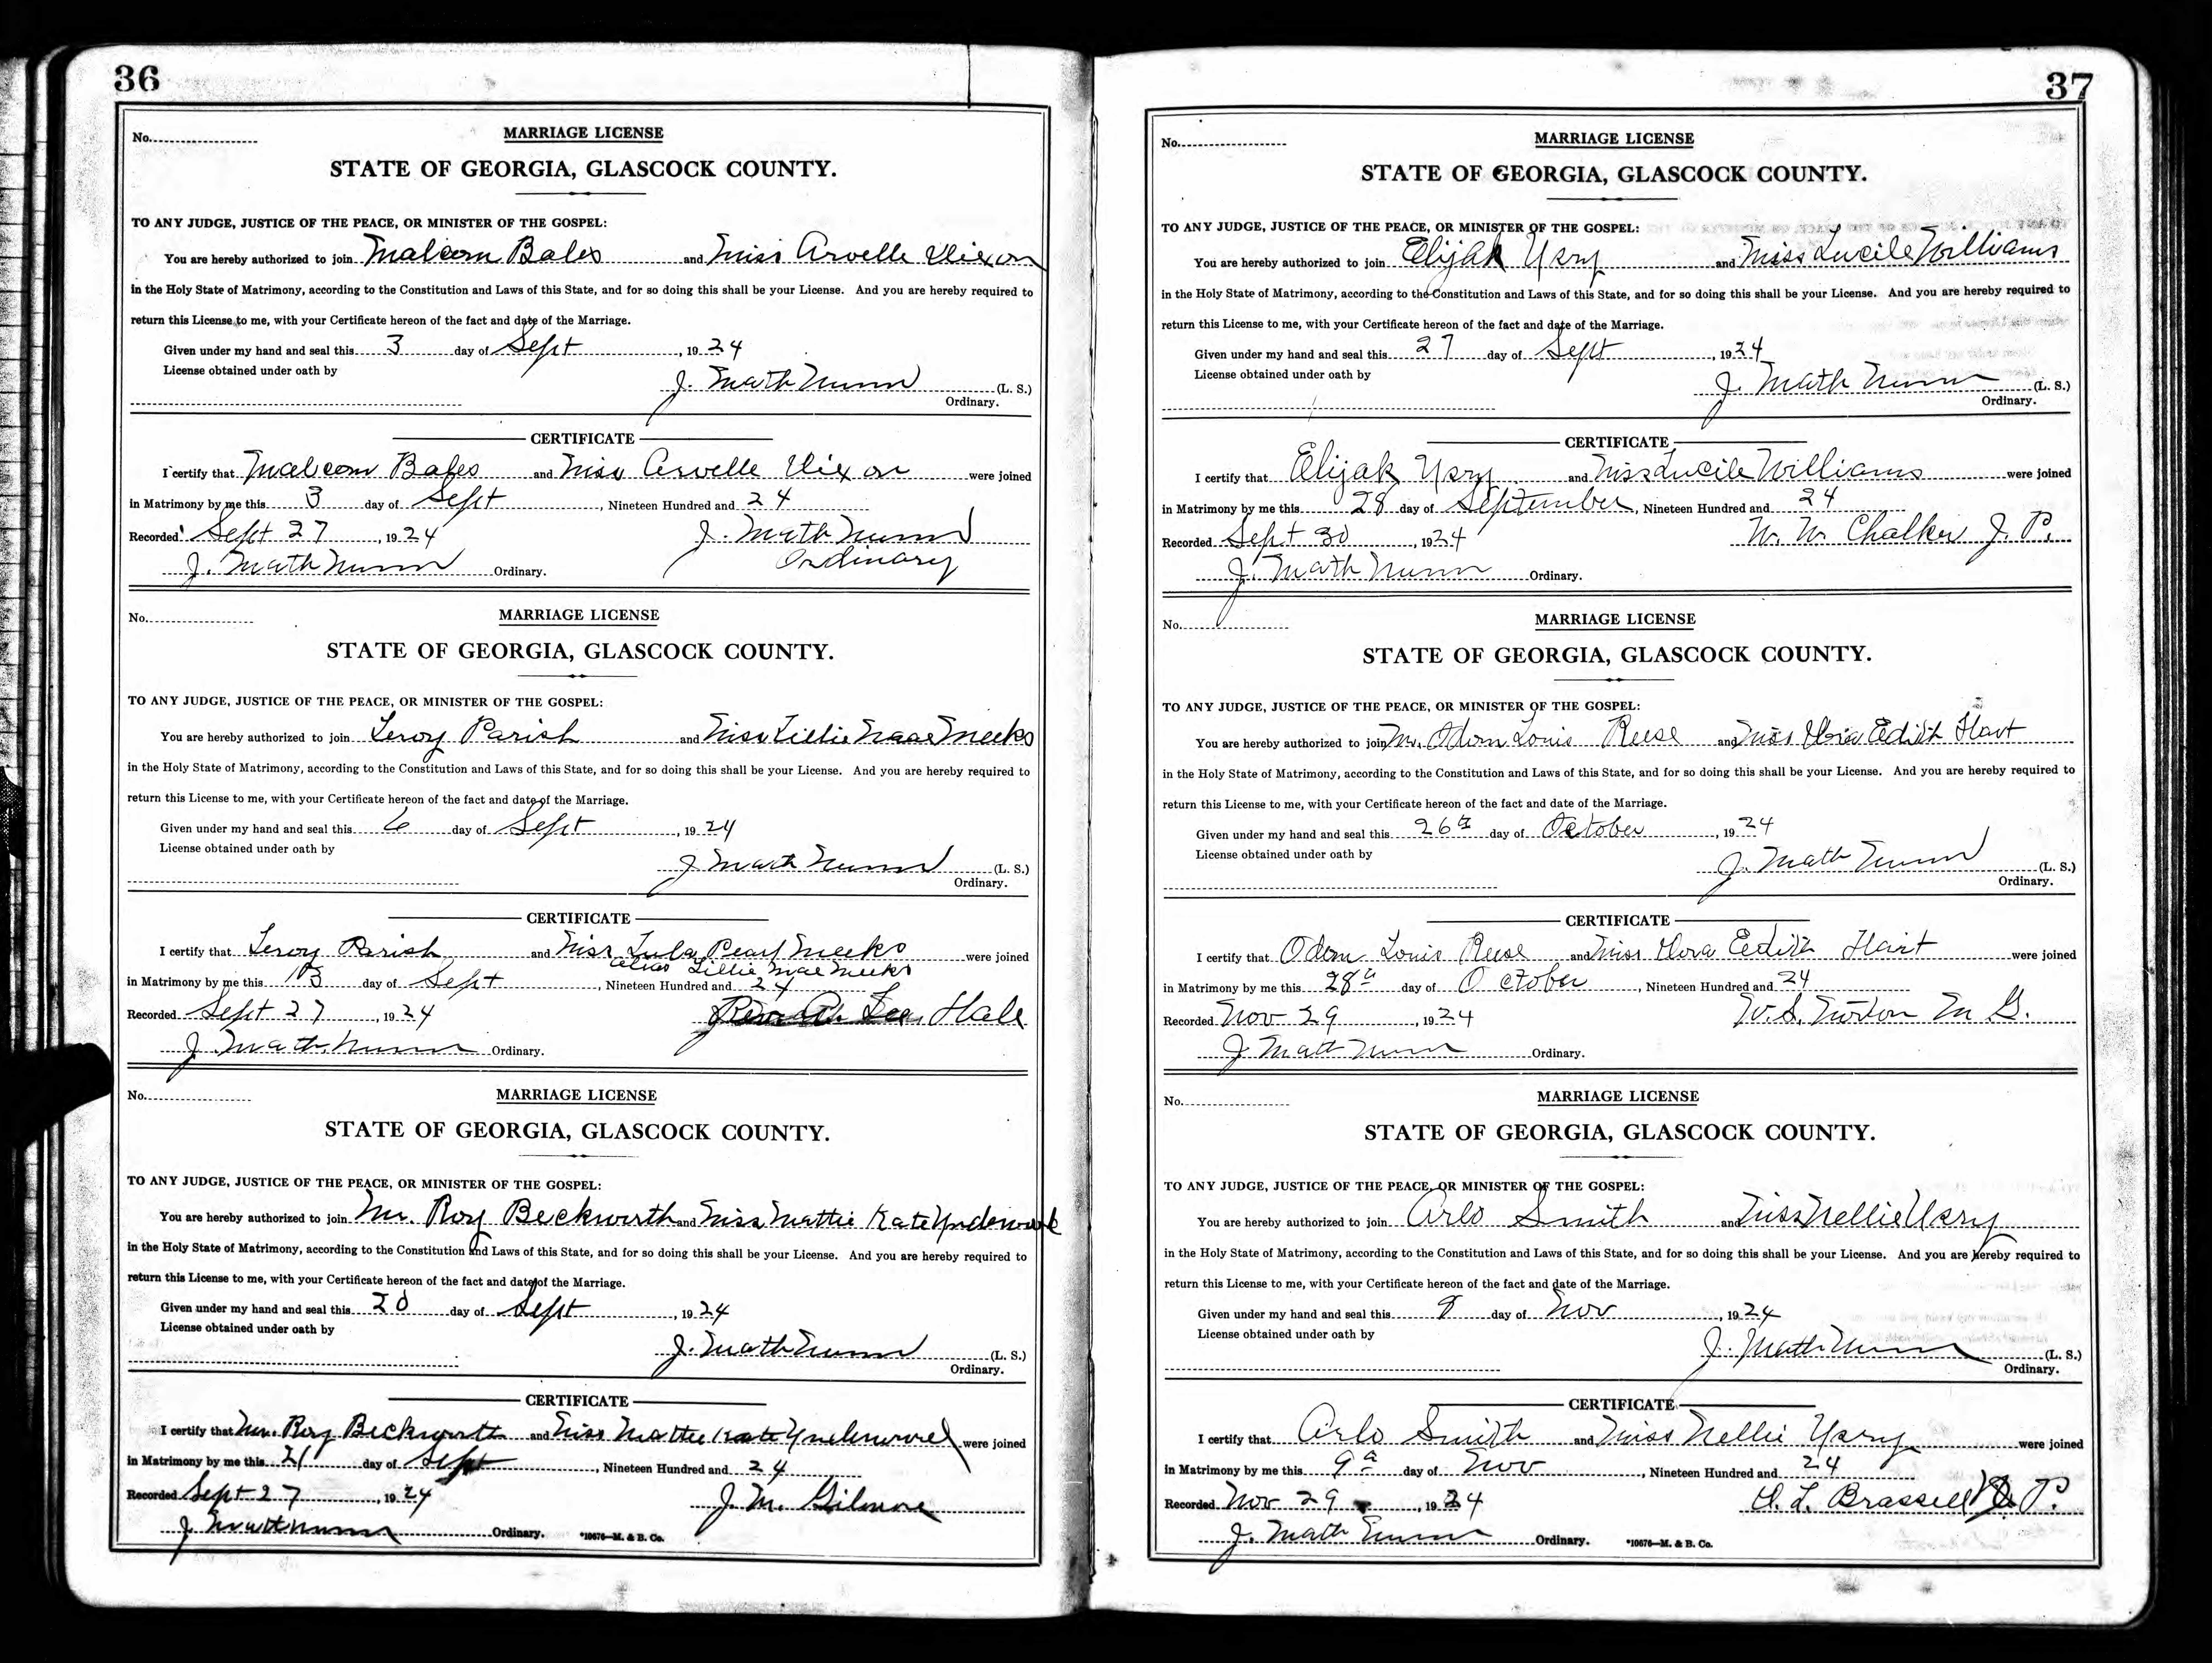 36
No.
MARRIAGE LICENSE
STATE OF GEORGIA, GLASCOCK COUNTY.
TO ANY JUDGE, JUSTICE OF THE PEACE, OR MINISTER OF THE GOSPEL:
You are hereby authorized to join Malcom Bales and Miss Arvelle Dixon
in the Holy State of Matrimony, according to the Constitution and Laws of this State, and for so doing this shall be your License. And you are hereby required to
return this License to me, with your Certificate hereon of the fact and date of the Marriage.
Given under my hand and seal this 3 day of Sept, 1924
License obtained under oath by
J. Math Nunn (L. S.)
Ordinary.
CERTIFICATE
I certify that Malcom Bales and Miss Arvelle Dixon were joined
in Matrimony by me this 3 day of Sept, Nineteen Hundred and 24
Recorded Sept 27, 1924 J. Math Nunn
J. Math Nunn Ordinary. Ordinary
No.
MARRIAGE LICENSE
STATE OF GEORGIA, GLASCOCK COUNTY.
TO ANY JUDGE, JUSTICE OF THE PEACE, OR MINISTER OF THE GOSPEL:
You are hereby authorized to join Leroy Parish and Miss Lillie Mae Meeks
in the Holy State of Matrimony, according to the Constitution and Laws of this State, and for so doing this shall be your License. And you are hereby required to
return this License to me, with your Certificate hereon of the fact and date of the Marriage.
Given under my hand and seal this 6 day of Sept, 1924
License obtained under oath by
J. Math Nunn (L. S.)
Ordinary.
CERTIFICATE
I certify that Leroy Parish and Miss Lula Pearl Meeks were joined
alias Lillie Mae Meeks
in Matrimony by me this day of Sept, Nineteen Hundred and 24
Recorded Sept 27, 1924 Hale
J. Math Nunn Ordinary.
No.
MARRIAGE LICENSE
STATE OF GEORGIA, GLASCOCK COUNTY.
TO ANY JUDGE, JUSTICE OF THE PEACE, OR MINISTER OF THE GOSPEL:
You are hereby authorized to join Mr. Roy Beckworth and Miss Mattie Kate Underwood
in the Holy State of Matrimony, according to the Constitution and Laws of this State, and for so doing this shall be your License. And you are hereby required to
return this License to me, with your Certificate hereon of the fact and date of the Marriage.
Given under my hand and seal this 20 day of Sept, 1924
License obtained under oath by
J. Math Nunn (L. S.)
Ordinary.
CERTIFICATE
I certify that Mr. Roy Beckworth and Miss Mattie Kate Underwood were joined
in Matrimony by me this 21 day of Sept, Nineteen Hundred and 24
Recorded Sept 27, 1924 J. M. Gilmore
J. Math Nunn Ordinary. *10676—M. & B. Co.
37
No.
MARRIAGE LICENSE
STATE OF GEORGIA, GLASCOCK COUNTY.
TO ANY JUDGE, JUSTICE OF THE PEACE, OR MINISTER OF THE GOSPEL:
You are hereby authorized to join Elijah Usry and Miss Lucile Williams
in the Holy State of Matrimony, according to the Constitution and Laws of this State, and for so doing this shall be your License. And you are hereby required to
return this License to me, with your Certificate hereon of the fact and date of the Marriage.
Given under my hand and seal this 27 day of Sept, 1924
License obtained under oath by
J. Math Nunn (L. S.)
Ordinary.
CERTIFICATE
I certify that Elijah Usry and Miss Lucile Williams were joined
in Matrimony by me this 28 day of September, Nineteen Hundred and 24
Recorded Sept 30, 1924 W. W. Chalker J. P.
J. Math Nunn Ordinary.
No.
MARRIAGE LICENSE
STATE OF GEORGIA, GLASCOCK COUNTY.
TO ANY JUDGE, JUSTICE OF THE PEACE, OR MINISTER OF THE GOSPEL:
You are hereby authorized to join Mr. Odom Louis Reese and Miss Edith Hart
in the Holy State of Matrimony, according to the Constitution and Laws of this State, and for so doing this shall be your License. And you are hereby required to
return this License to me, with your Certificate hereon of the fact and date of the Marriage.
Given under my hand and seal this 26th day of October, 1924
License obtained under oath by
J. Math Nunn (L. S.)
Ordinary.
CERTIFICATE
I certify that Odom Louis Reese and Miss Edith Hart were joined
in Matrimony by me this 28th day of October, Nineteen Hundred and 24
Recorded Nov 29, 1924 W. S. Norton M G.
J Math Nunn Ordinary.
No.
MARRIAGE LICENSE
STATE OF GEORGIA, GLASCOCK COUNTY.
TO ANY JUDGE, JUSTICE OF THE PEACE, OR MINISTER OF THE GOSPEL:
You are hereby authorized to join Arlo Smith and Miss Nellie Usry
in the Holy State of Matrimony, according to the Constitution and Laws of this State, and for so doing this shall be your License. And you are hereby required to
return this License to me, with your Certificate hereon of the fact and date of the Marriage.
Given under my hand and seal this 9 day of Nov, 1924
License obtained under oath by
J. Math Nunn (L. S.)
Ordinary.
CERTIFICATE
I certify that Arlo Smith and Miss Nellie Usry were joined
in Matrimony by me this 9th day of Nov, Nineteen Hundred and 24
Recorded Nov 29, 1924 L. Brassell P.
J. Math Nunn Ordinary. *10676—M. & B. Co.